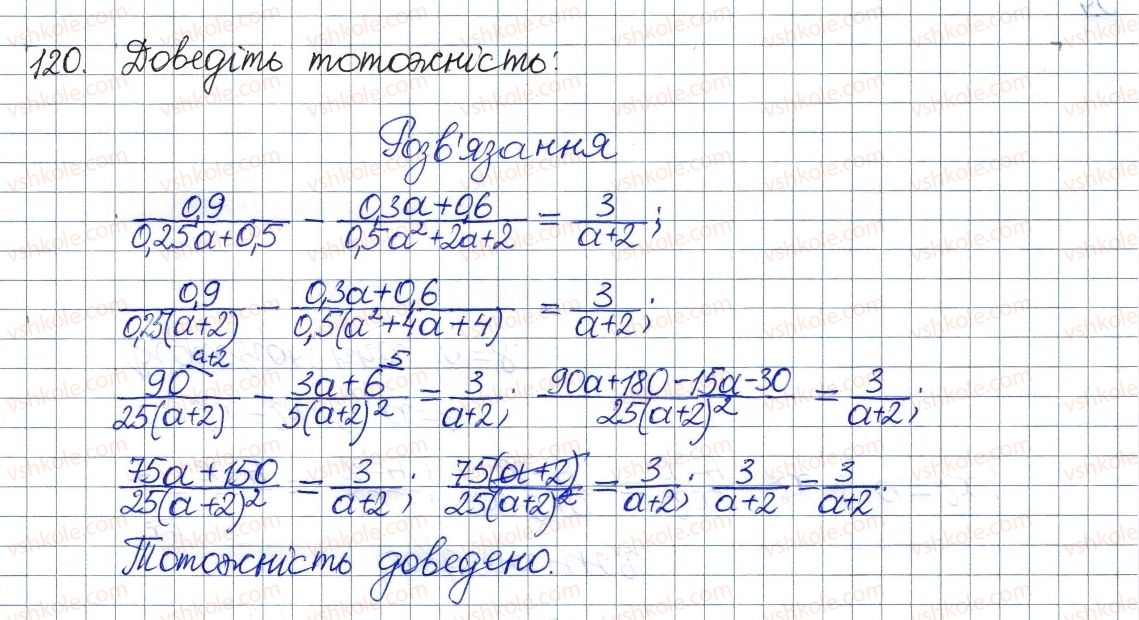 120. Доведіть тотожність:
Розв'язання
0,9/(0,25a+0,5) − (0,3a+0,6)/(0,5a²+2a+2) = 3/(a+2);
0,9/(0,25(a+2)) − (0,3a+0,6)/(0,5(a²+4a+4)) = 3/(a+2);
90^(a+2)/(25(a+2)) − (3a+6)^5/(5(a+2)²) = 3/(a+2); (90a+180−15a−30)/(25(a+2)²) = 3/(a+2);
(75a+150)/(25(a+2)²) = 3/(a+2); 75(a+2)/(25(a+2)²) = 3/(a+2); 3/(a+2) = 3/(a+2).
Тотожність доведено.